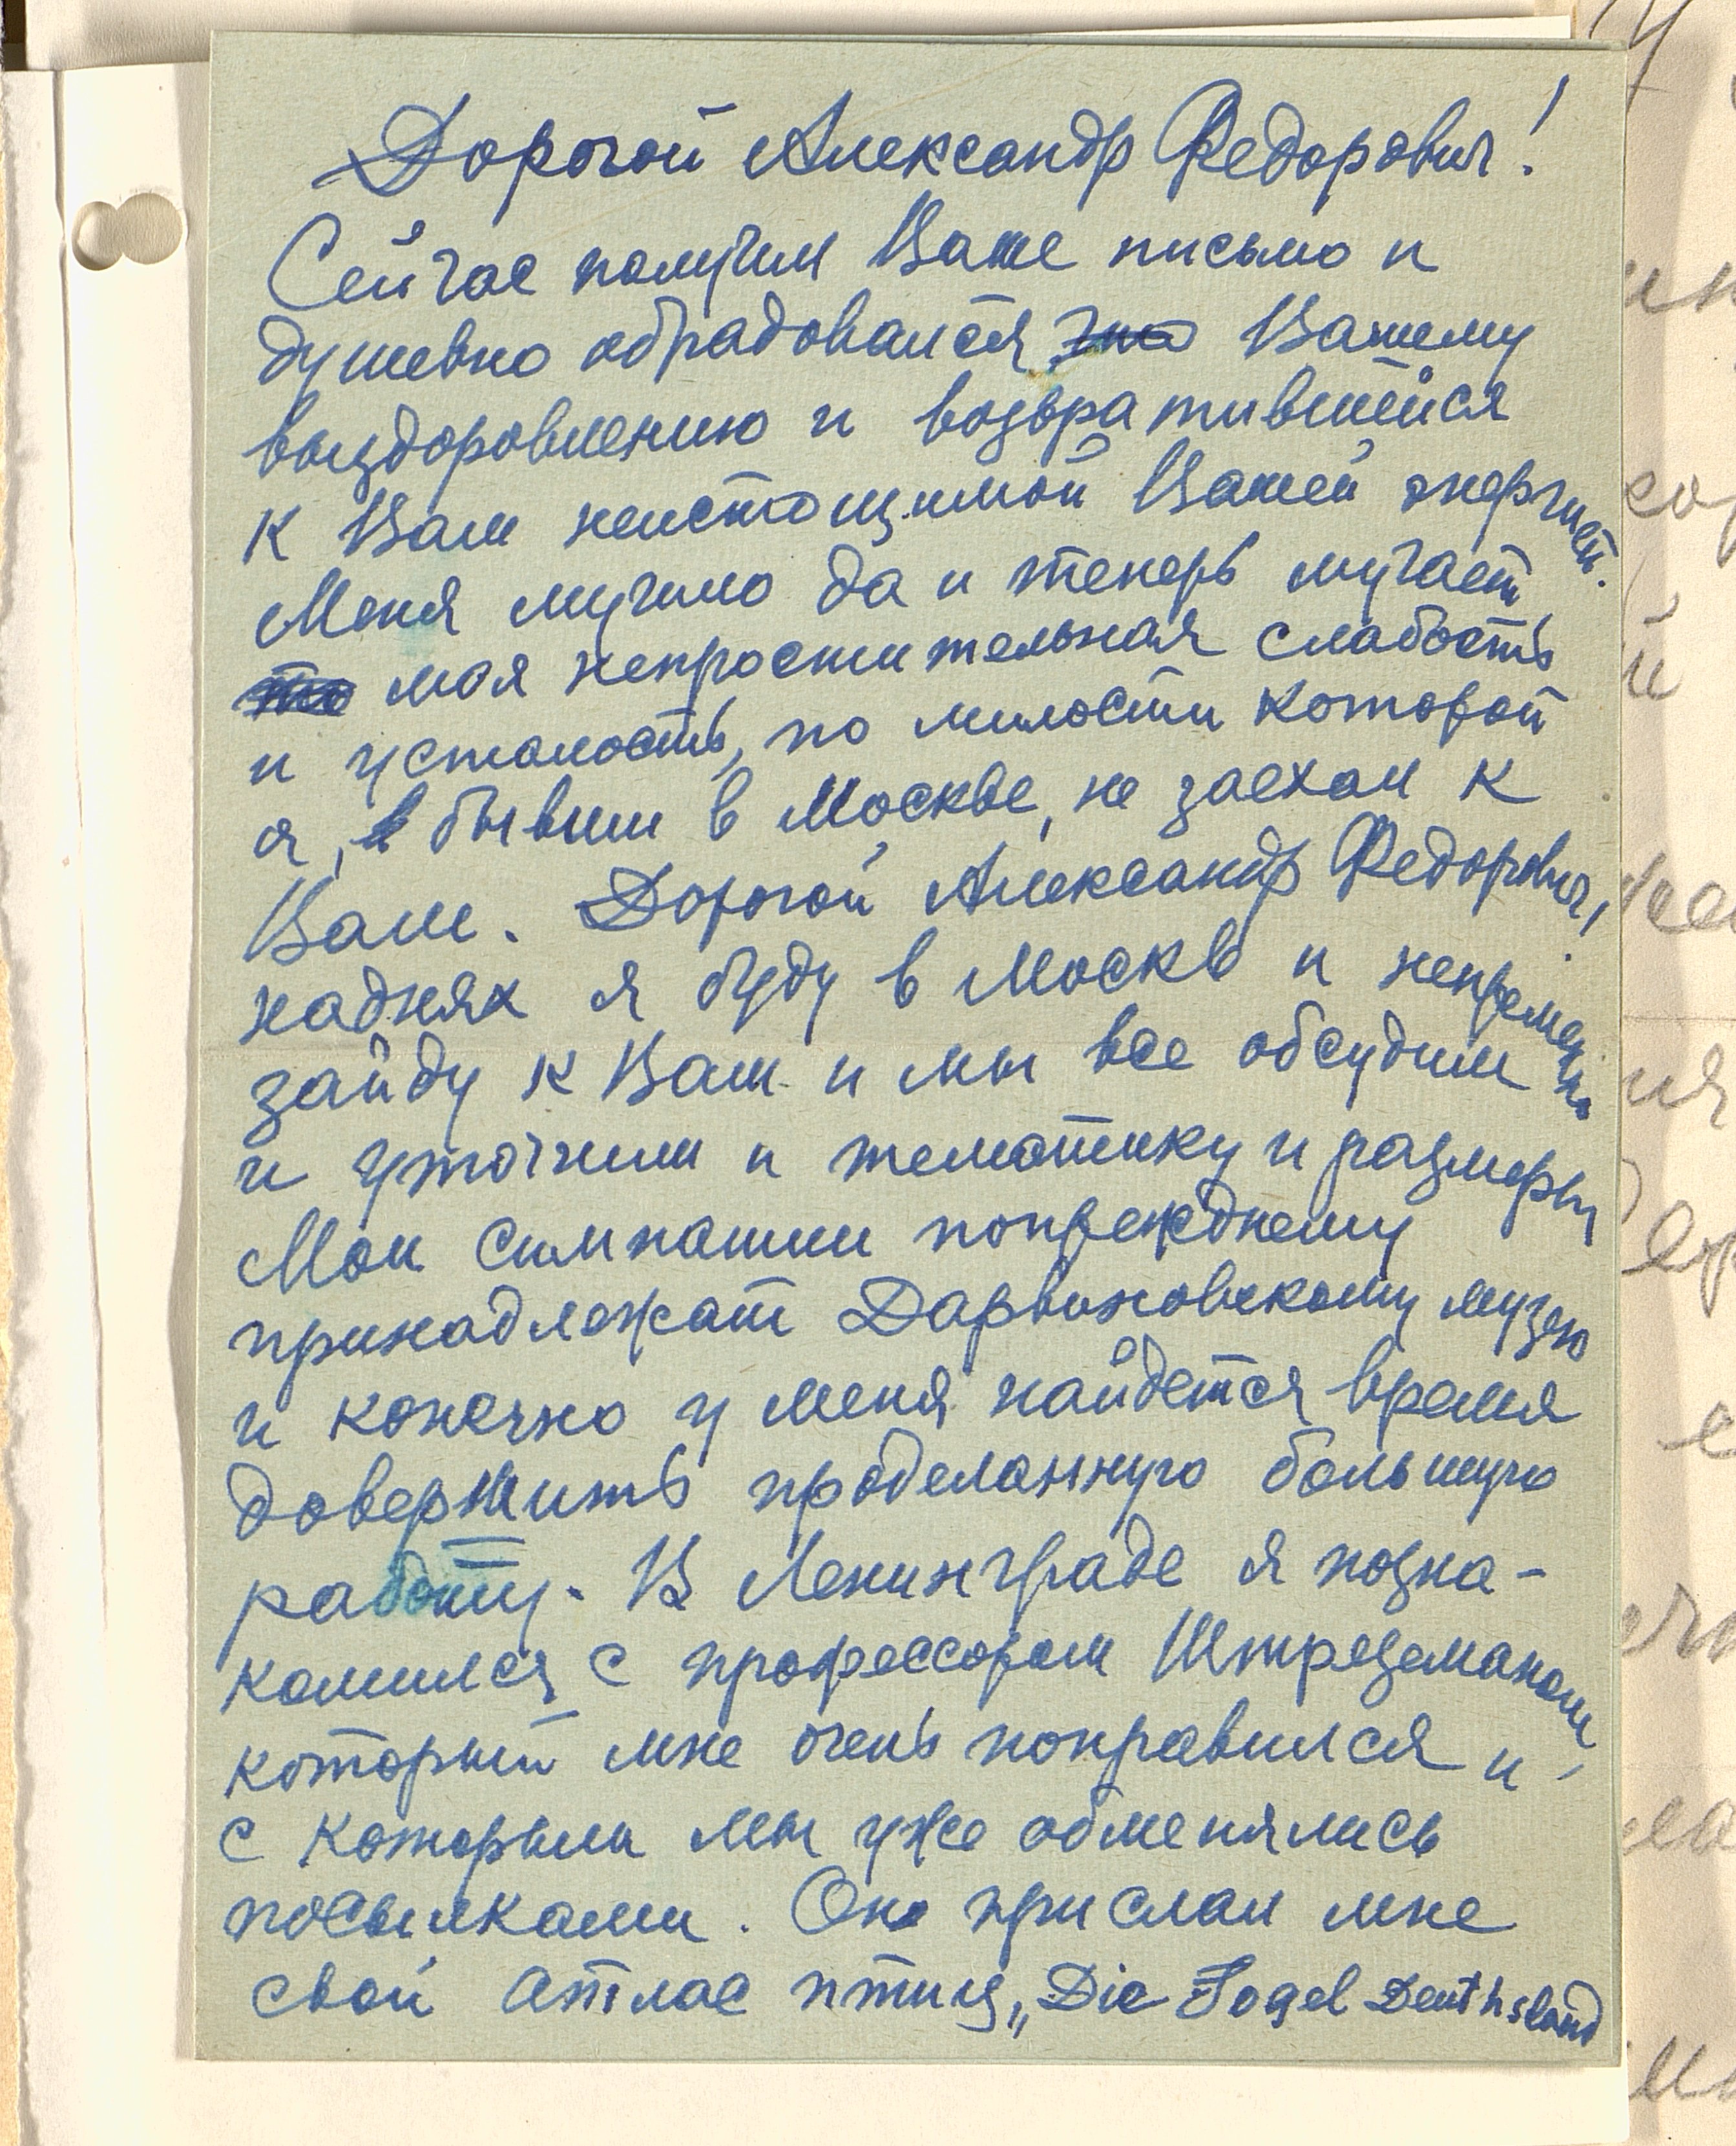 Дорогой Александр Федорович!
Сейчас получил Ваше письмо и
душевно обрадовался Вашему
выздоровлению и возвратившейся
к Вам неистощимой Вашей энергией.
Меня мучило да и теперь мучает
моя непростительная слабость
и усталость, по милости которой
я, бывши в Москве, не заехал к
Вам. Дорогой Александр Федорович,
наднях я буду в Москв и непременно
зайду к Вам и мы все обсудим
и уточним и тематику и размеры
Мои симпатии попрежднему
принадлежат Дарвиновскому музею
и конечно у меня найдется время
довершить проделанную большую
работу. В Ленинграде я позна-
комился с профессором Штреземаном,
который мне очень понравился и
с которым мы уже обменялись
посылками. Он прислал мне
свой атлас птиц „Die Fogel Deuthsland